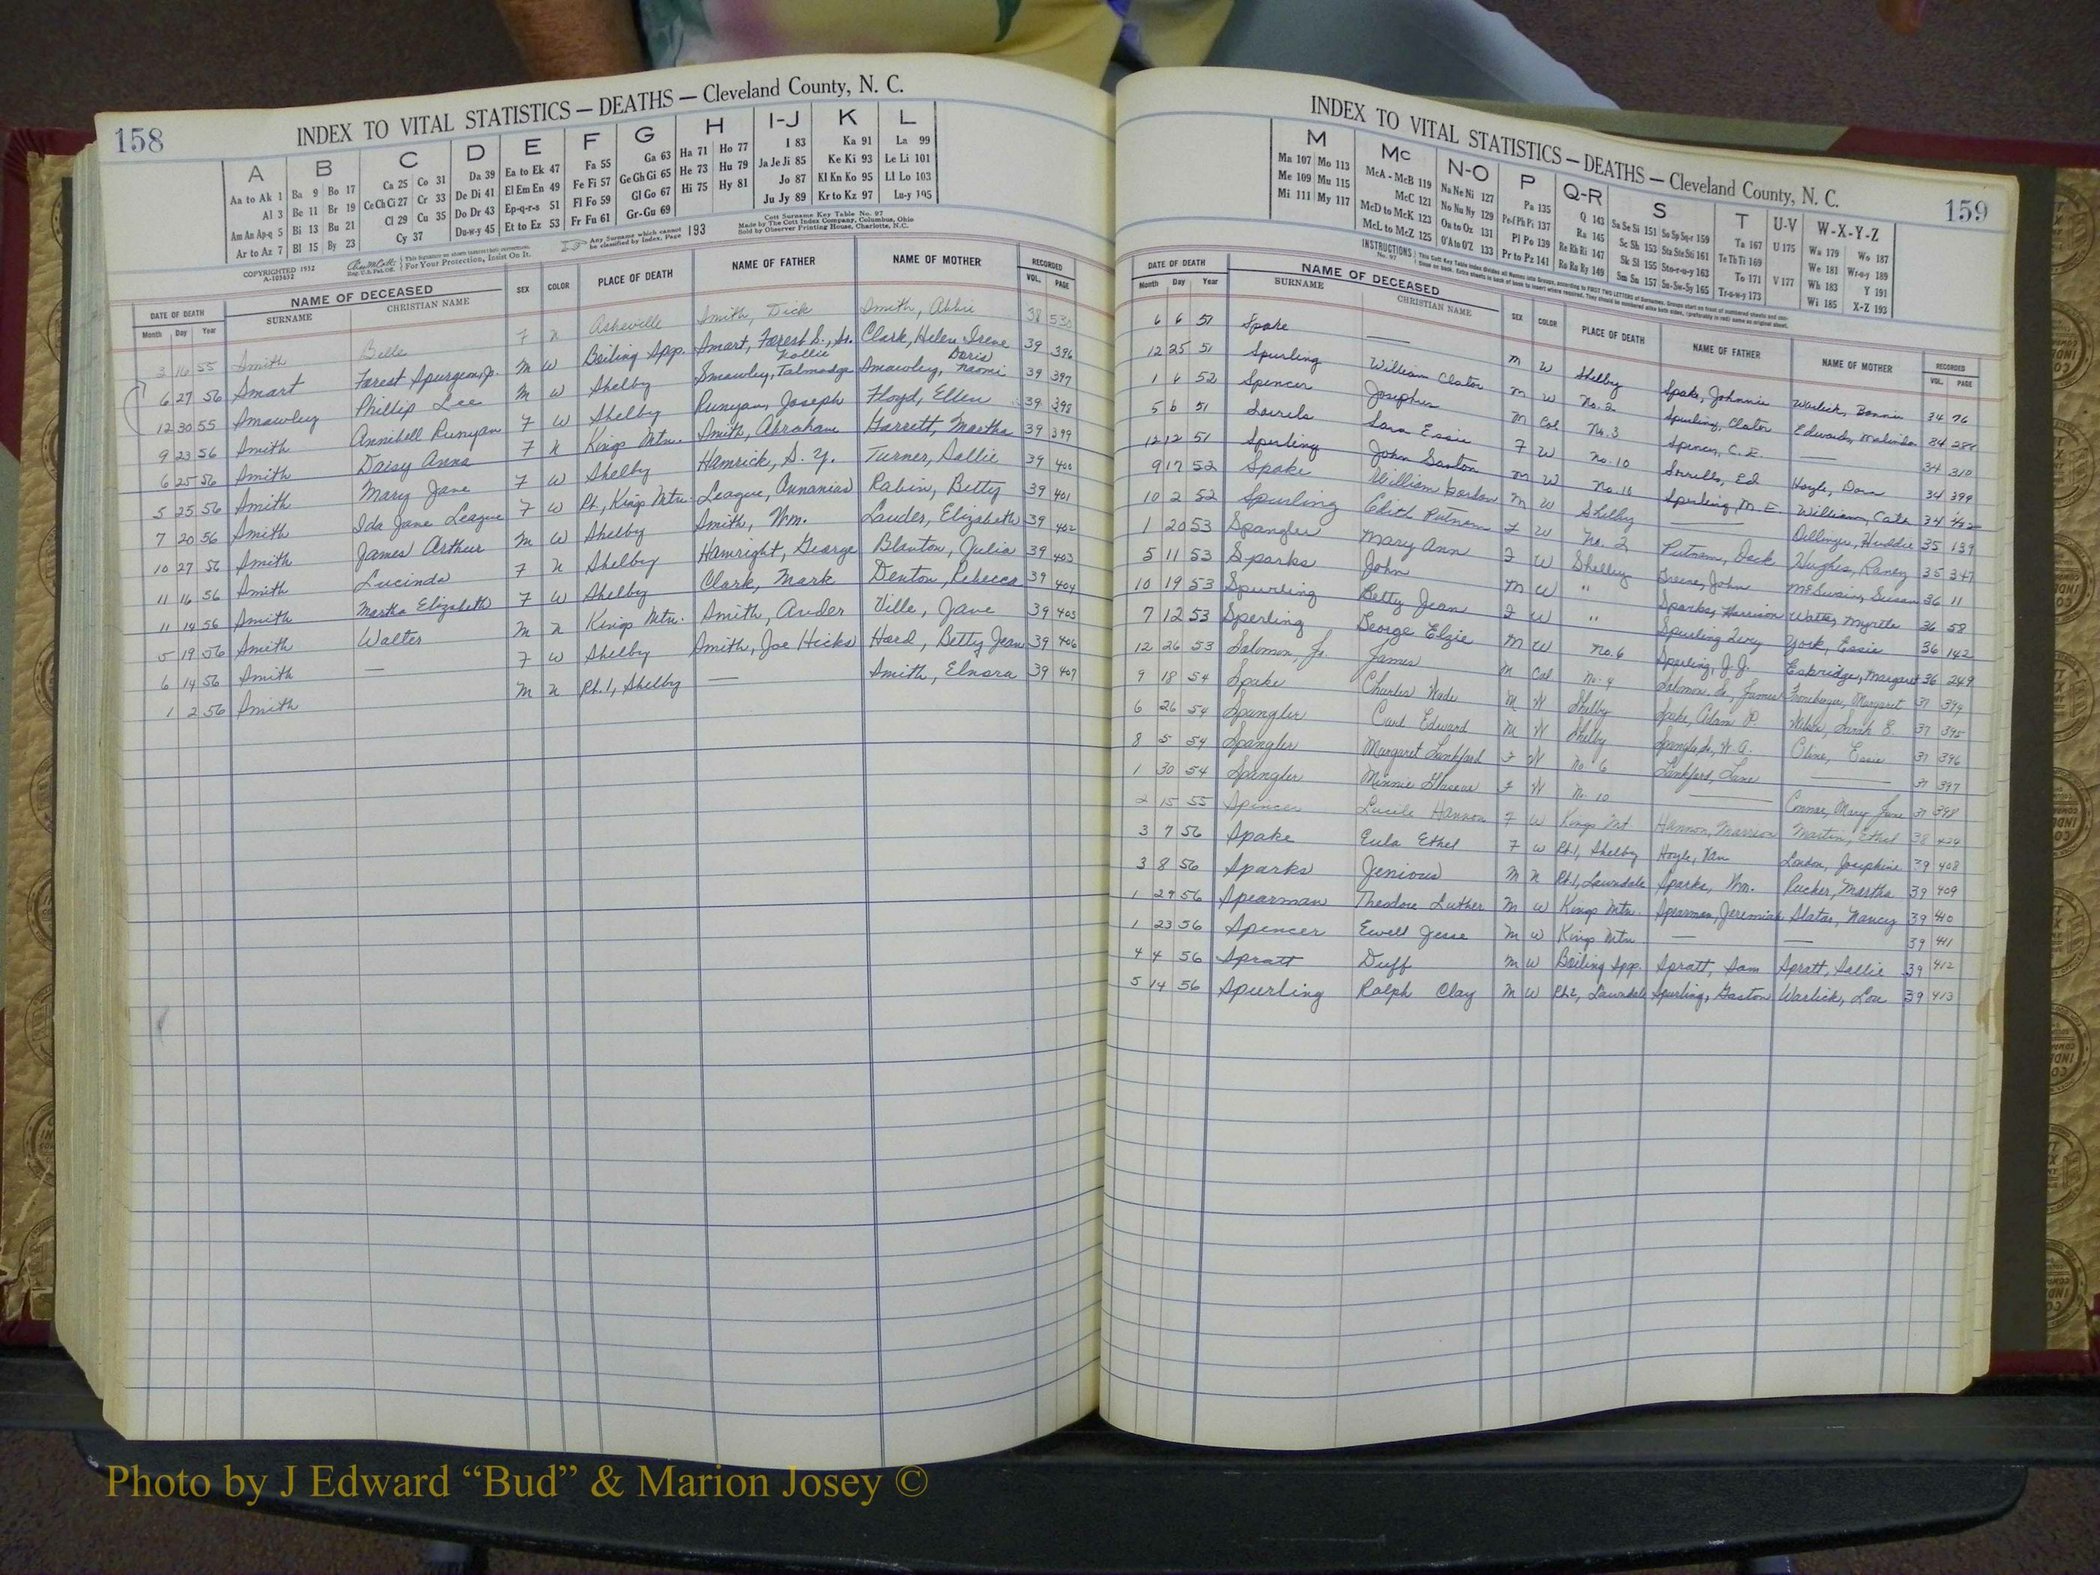 158
INDEX TO VITAL STATISTICS — DEATHS — Cleveland County, N. C.
A B C D E F G H I-J K L
Aa to Ak 1 Ba 9 Bo 17 Ca 25 Co 31 Da 39 Ea to Ek 47 Fa 55 Ga 63 Ha 71 Ho 77 I 83 Ka 91 La 99
Al 3 Be 11 Br 19 Ce Ch Ci 27 Cr 33 De Di 41 El Em En 49 Fe Fi 57 Ge Gh Gi 65 He 73 Hu 79 Ja Je Ji 85 Ke Ki 93 Le Li 101
Am An Ap-q 5 Bi 13 Bu 21 Cl 29 Cu 35 Do Dr 43 Ep-q-r-s 51 Fl Fo 59 Gl Go 67 Hi 75 Hy 81 Jo 87 Kl Kn Ko 95 Ll Lo 103
Ar to Az 7 Bl 15 By 23 Cy 37 Du-w-y 45 Et to Ez 53 Fr Fu 61 Gr-Gu 69 Ju Jy 89 Kr to Kz 97 Lu-y 105
COPYRIGHTED 1932
A-103632
For Your Protection, Insist On It.
Any Surname which cannot be classified by Index, Page 193
Cott Surname Key Table No. 97
Made by The Cott Index Company, Columbus, Ohio
Sold by Observer Printing House, Charlotte, N.C.
DATE OF DEATH NAME OF DECEASED SEX COLOR PLACE OF DEATH NAME OF FATHER NAME OF MOTHER RECORDED
Month Day Year SURNAME CHRISTIAN NAME VOL. PAGE
3 16 55 Smith Belle F N Asheville Smith, Dick Smith, Abbie 38 530
6 27 56 Smart Forest Spurgeon, Jr. M W Boiling Spp. Smart, Forest S., Sr. Clark, Helen Irene 39 396
12 30 55 Smawley Phillip Lee M W Shelby Smawley, Talmadge Nollie Smawley, Naomi Doris 39 397
9 23 56 Smith Annibell Runyan F W Shelby Runyan, Joseph Floyd, Ellen 39 398
6 25 56 Smith Daisy Anna F N Kings Mtn. Smith, Abraham Garrett, Martha 39 399
5 25 56 Smith Mary Jane F W Shelby Hamrick, S. Y. Turner, Sallie 39 400
7 20 56 Smith Ida Jane League F W Rt., Kings Mtn. League, Annanias Rabin, Betty 39 401
10 27 56 Smith James Arthur M W Shelby Smith, Wm. Lauder, Elizabeth 39 402
11 16 56 Smith Lucinda F N Shelby Hamright, George Blanton, Julia 39 403
11 14 56 Smith Martha Elizabeth F W Shelby Clark, Mark Denton, Rebecca 39 404
5 19 56 Smith Walter M N Kings Mtn. Smith, Ander Ville, Jane 39 405
6 14 56 Smith — F W Shelby Smith, Joe Hicks Hord, Betty Jean 39 406
1 2 56 Smith M N Rt. 1, Shelby — Smith, Elnora 39 407
159
INDEX TO VITAL STATISTICS — DEATHS — Cleveland County, N. C.
M Mc N-O P Q-R S T U-V W-X-Y-Z
Ma 107 Mo 113 McA - McB 119 Na Ne Ni 127 Pa 135 Q 143 Sa Se Si 151 So Sp Sq-r 159 Ta 167 U 175 Wa 179 Wo 187
Me 109 Mu 115 McC 121 No Nu Ny 129 Pe-f Ph Pi 137 Ra 145 Sc Sh 153 Sta Ste Sti 161 Te Th Ti 169 We 181 Wr-o-y 189
Mi 111 My 117 McD to McK 123 Oa to Oz 131 Pl Po 139 Re Rh Ri 147 Sk Sl 155 Sto-r-u-y 163 To 171 V 177 Wh 183 Y 191
McL to McZ 125 O'A to O'Z 133 Pr to Pz 141 Ro Ru Ry 149 Sm Sn 157 Su-Sw-Sy 165 Tr-u-w-y 173 Wi 185 X-Z 193
INSTRUCTIONS No. 97
DATE OF DEATH NAME OF DECEASED SEX COLOR PLACE OF DEATH NAME OF FATHER NAME OF MOTHER RECORDED
Month Day Year SURNAME CHRISTIAN NAME VOL. PAGE
6 6 51 Spake — M W Shelby Spake, Johnnie Warlick, Bonnie 34 76
12 25 51 Spurling William Clator M W No. 2 Spurling, Clator Edwards, Malinda 34 286
1 6 52 Spencer Josephus M Col No. 3 Spencer, C. E. — 34 310
5 6 51 Sorrels Sara Essie F W No. 10 Sorrells, Ed Hoyle, Dora 34 399
12 12 51 Sperling John Santon M W No. 10 Sperling M. E. William, Cate 34 492
9 17 52 Spake William Gordon M W Shelby — Dellinger, Huddie 35 139
10 2 52 Spurling Edith Putnam F W No. 2 Putnam, Dock Hughes, Raney 35 347
1 20 53 Spangler Mary Ann F W Shelby Greene, John McSwain, Susan 36 11
5 11 53 Sparks John M W " Sparks, Harrison Watts, Myrtle 36 58
10 19 53 Spurling Betty Jean F W " Spurling Levy York, Essie 36 142
7 12 53 Sperling George Elzie M W No. 6 Sperling, J. J. Eskridge, Margaret 36 249
12 26 53 Solomon, Jr. James M Col No. 4 Solomon, Sr. James Froneberger, Margaret 37 394
9 18 54 Spake Charles Wade M W Shelby Spake, Adam P. Wilson, Sarah E. 37 395
6 26 54 Spangler Carl Edward M W Shelby Spangler Sr., W. A. Cline, Essie 37 396
8 5 54 Spangler Margaret Lankford F W No. 6 Lankford, Lane — 37 397
1 30 54 Spangler Minnie F W No. 10 — Connor, Mary Jane 37 398
2 15 55 Spencer Lucile Hannon F W Kings Mt Hannon, Marrion Martin, Ethel 38 424
3 7 56 Spake Eula Ethel F W Rt. 1, Shelby Hoyle, Van London, Josephine 39 408
3 8 56 Sparks Jenious M N Rt. 1, Lawndale Sparks, Wm. Rucker, Martha 39 409
1 29 56 Spearman Theodore Luther M W Kings Mtn. Spearman, Jeremiah Slater, Nancy 39 410
1 23 56 Spencer Ewell Jesse M W Kings Mtn — — 39 411
4 4 56 Spratt Duff M W Boiling Spp. Spratt, Sam Spratt, Sallie 39 412
5 14 56 Spurling Ralph Clay M W Rt. 2, Lawndale Spurling, Gaston Warlick, Lou 39 413
Photo by J Edward “Bud” & Marion Josey ©